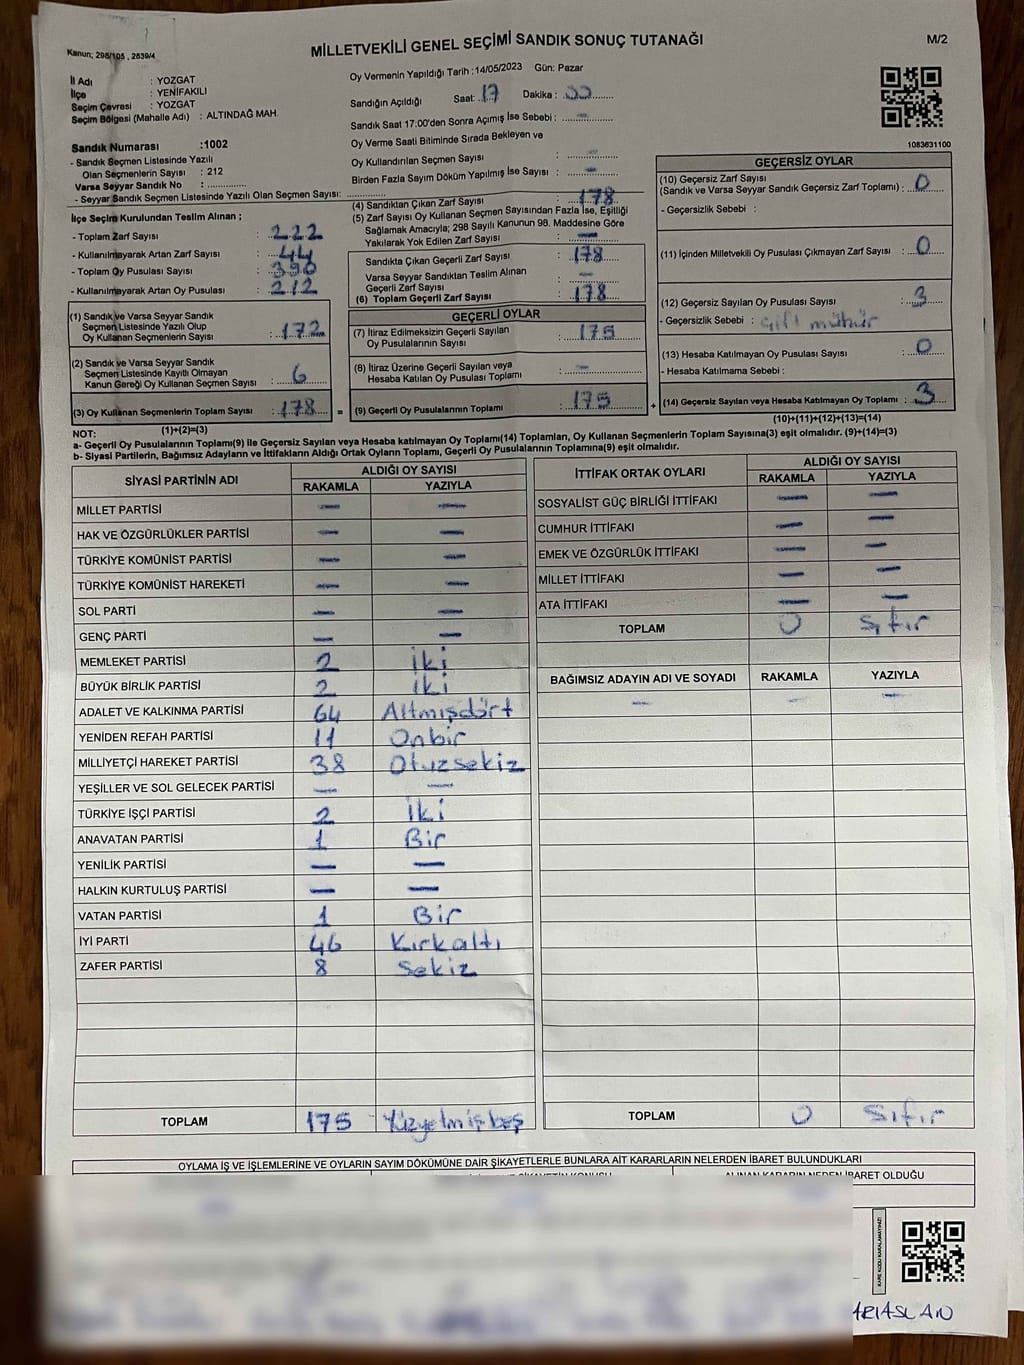 Kanun; 298/105 , 2839/4
MİLLETVEKİLİ GENEL SEÇİMİ SANDIK SONUÇ TUTANAĞI
M/2
İl Adı : YOZGAT
İlçe : YENİFAKILI
Seçim Çevresi : YOZGAT
Seçim Bölgesi (Mahalle Adı) : ALTINDAĞ MAH.
Sandık Numarası :1002
- Sandık Seçmen Listesinde Yazılı
Olan Seçmenlerin Sayısı : 212
Varsa Seyyar Sandık No :
- Seyyar Sandık Seçmen Listesinde Yazılı Olan Seçmen Sayısı:
Oy Vermenin Yapıldığı Tarih :14/05/2023 Gün: Pazar
Sandığın Açıldığı Saat: 17 Dakika :
Sandık Saat 17:00'den Sonra Açımış İse Sebebi : -
Oy Verme Saati Bitiminde Sırada Bekleyen ve
Oy Kullandırılan Seçmen Sayısı : -
Birden Fazla Sayım Döküm Yapılmış İse Sayısı : -
1083631100
İlçe Seçim Kurulundan Teslim Alınan ;
- Toplam Zarf Sayısı : 222
- Kullanılmayarak Artan Zarf Sayısı : 44
- Toplam Oy Pusulası Sayısı : 390
- Kullanılmayarak Artan Oy Pusulası : 212
(1) Sandık ve Varsa Seyyar Sandık
Seçmen Listesinde Yazılı Olup
Oy Kullanan Seçmenlerin Sayısı : 172
(2) Sandık ve Varsa Seyyar Sandık
Seçmen Listesinde Kayıtlı Olmayan
Kanun Gereği Oy Kullanan Seçmen Sayısı : 6
(3) Oy Kullanan Seçmenlerin Toplam Sayısı : 178
(1)+(2)=(3)
(4) Sandıktan Çıkan Zarf Sayısı : 178
(5) Zarf Sayısı Oy Kullanan Seçmen Sayısından Fazla İse, Eşitliği
Sağlamak Amacıyla; 298 Sayılı Kanunun 98. Maddesine Göre
Yakılarak Yok Edilen Zarf Sayısı : -
Sandıkta Çıkan Geçerli Zarf Sayısı : 178
Varsa Seyyar Sandıktan Teslim Alınan
Geçerli Zarf Sayısı : -
(6) Toplam Geçerli Zarf Sayısı : 178
GEÇERLİ OYLAR
(7) İtiraz Edilmeksizin Geçerli Sayılan
Oy Pusulalarının Sayısı : 175
(8) İtiraz Üzerine Geçerli Sayılan veya
Hesaba Katılan Oy Pusulası Toplamı : -
= (9) Geçerli Oy Pusulalarının Toplamı : 175
GEÇERSİZ OYLAR
(10) Geçersiz Zarf Sayısı
(Sandık ve Varsa Seyyar Sandık Geçersiz Zarf Toplamı) : 0
- Geçersizlik Sebebi :
(11) İçinden Milletvekili Oy Pusulası Çıkmayan Zarf Sayısı : 0
(12) Geçersiz Sayılan Oy Pusulası Sayısı : 3
- Geçersizlik Sebebi : çift mühür
(13) Hesaba Katılmayan Oy Pusulası Sayısı : 0
- Hesaba Katılmama Sebebi :
+ (14) Geçersiz Sayılan veya Hesaba Katılmayan Oy Toplamı : 3
(10)+(11)+(12)+(13)=(14)
NOT:
a- Geçerli Oy Pusulalarının Toplamı(9) ile Geçersiz Sayılan veya Hesaba katılmayan Oy Toplamı(14) Toplamları, Oy Kullanan Seçmenlerin Toplam Sayısına(3) eşit olmalıdır. (9)+(14)=(3)
b- Siyasi Partilerin, Bağımsız Adayların ve İttifakların Aldığı Ortak Oyların Toplamı, Geçerli Oy Pusulalarının Toplamına(9) eşit olmalıdır.
SİYASİ PARTİNİN ADI ALDIĞI OY SAYISI
RAKAMLA YAZIYLA
MİLLET PARTİSİ - -
HAK VE ÖZGÜRLÜKLER PARTİSİ - -
TÜRKİYE KOMÜNİST PARTİSİ - -
TÜRKİYE KOMÜNİST HAREKETİ - -
SOL PARTİ - -
GENÇ PARTİ - -
MEMLEKET PARTİSİ 2 İki
BÜYÜK BİRLİK PARTİSİ 2 İki
ADALET VE KALKINMA PARTİSİ 64 Altmışdört
YENİDEN REFAH PARTİSİ 11 Onbir
MİLLİYETÇİ HAREKET PARTİSİ 38 Otuzsekiz
YEŞİLLER VE SOL GELECEK PARTİSİ - -
TÜRKİYE İŞÇİ PARTİSİ 2 İki
ANAVATAN PARTİSİ 1 Bir
YENİLİK PARTİSİ - -
HALKIN KURTULUŞ PARTİSİ - -
VATAN PARTİSİ 1 Bir
İYİ PARTİ 46 Kırkaltı
ZAFER PARTİSİ 8 Sekiz
TOPLAM 175 Yüzyetmişbeş
İTTİFAK ORTAK OYLARI ALDIĞI OY SAYISI
RAKAMLA YAZIYLA
SOSYALİST GÜÇ BİRLİĞİ İTTİFAKI - -
CUMHUR İTTİFAKI - -
EMEK VE ÖZGÜRLÜK İTTİFAKI - -
MİLLET İTTİFAKI - -
ATA İTTİFAKI - -
TOPLAM 0 Sıfır
BAĞIMSIZ ADAYIN ADI VE SOYADI RAKAMLA YAZIYLA
- - -
TOPLAM 0 Sıfır
OYLAMA İŞ VE İŞLEMLERİNE VE OYLARIN SAYIM DÖKÜMÜNE DAİR ŞİKAYETLERLE BUNLARA AİT KARARLARIN NELERDEN İBARET BULUNDUKLARI
ALINAN KARARIN NEDEN İBARET OLDUĞU
KARE KODU KARALAMAYINIZ!
ARIASLAN